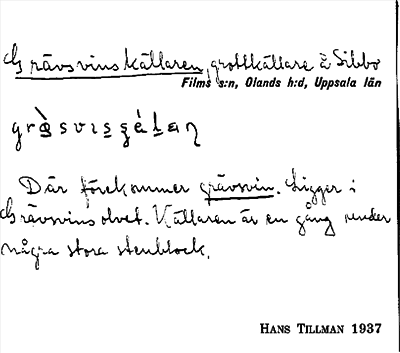 Grävsvinskällaren, grottkällare å Sibbo
Films s:n, Olands h:d, Uppsala län
Där förekommer grävsvin. Ligger i
Grävsvinsolvet. Källaren är en gång under
några stora stenblock.
HANS TILLMAN 1937